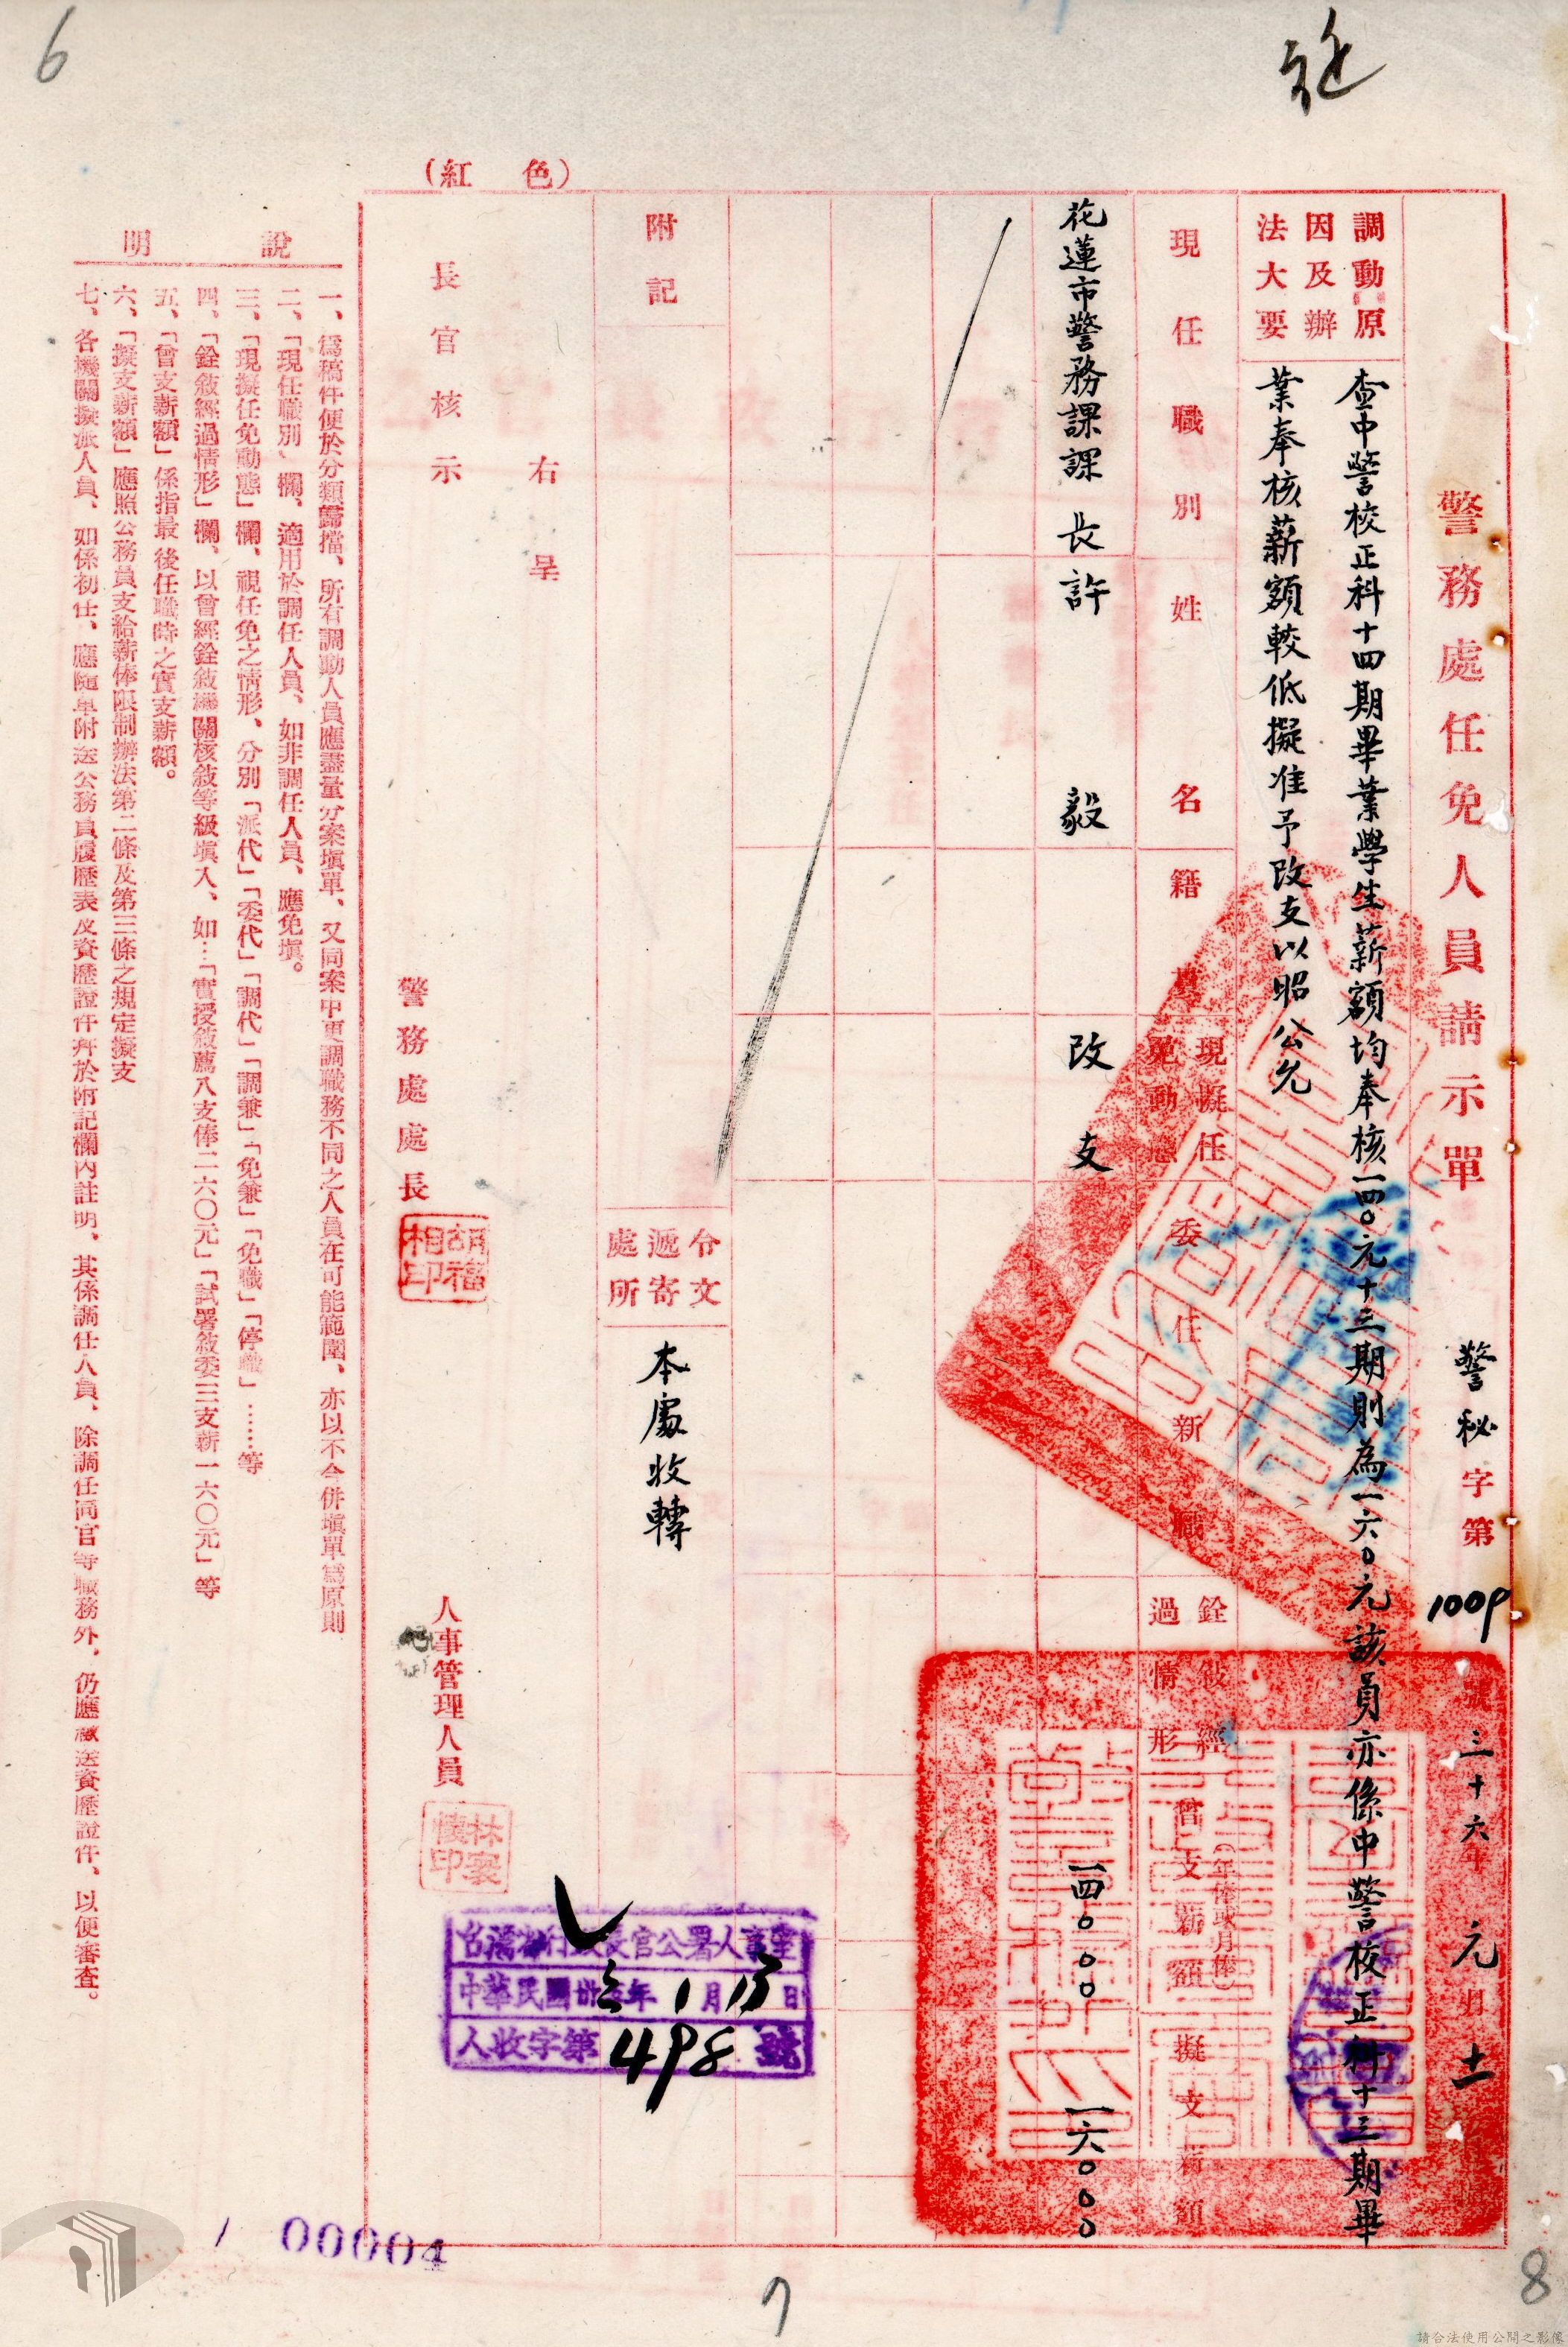 6
(紅色)
警務處任免人員請示單
警秘字第1009號
三十六年元月十一日
調動原因及辦法大要
查中警校正科十四期畢業學生薪額均奉核一四〇元十三期則為一六〇元該員亦係中警校正科十三期畢
業奉核薪額較低擬准予改支以昭公允
現任職別
姓名
籍貫
現擬任免動態
委任新職
銓敘經過情形
曾支薪額
(年俸或月俸)
擬支薪額
花蓮市警務課課長
許毅
改支
一四〇〇〇
一六〇〇〇
附記
令文遞寄處所
本處收轉
右呈
長官核示
警務處處長
胡福相印
人事管理人員
林襄懷印
台灣省行政長官公署人事室
中華民國卅六年1月13日
人收字第498號
說明
一、爲稿件便於分類歸檔、所有調動人員應盡量分案塡單、又同案中更調職務不同之人員在可能範圍、亦以不合併塡單爲原則
二、「現任職別」欄、適用於調任人員、如非調任人員、應免塡。
三、「現擬任免動態」欄、視任免之情形、分別「派代」「委代」「調代」「調兼」「免兼」「免職」「停職」……等
四、「銓敘經過情形」欄、以曾經銓敘機關核敘等級塡入、如…「實授敘薦八支俸二六〇元」「試署敘委三支薪一六〇元」等
五、「曾支薪額」係指最後任職時之實支薪額。
六、「擬支薪額」應照公務員支給薪俸限制辦法第二條及第三條之規定擬支
七、各機關擬派人員、如係初任、應隨單附送公務員履歷表及資歷證件幷於附記欄內註明、其係調任人員、除調任同官等職務外、仍應檢送資歷證件、以便審查。
00004
7
8
請合法使用公開之影像